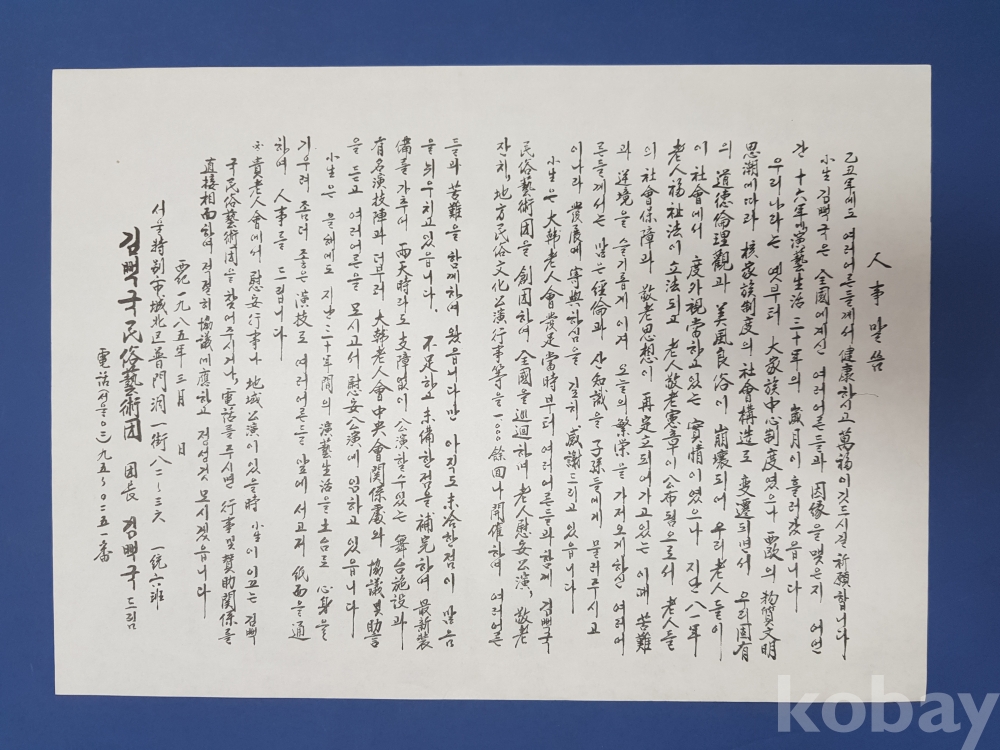 人事말씀
乙丑年에도 여러어른들께서 健康하시고 萬福이깃드시길 祈願합니다.
小生 김뻑국은 全國에계신 여러어른들과 因緣을 맺은지 어언
간 十六年 演藝生活 三十年의 歲月이 흘러갔읍니다
우리나라는 옛부터 大家族中心制度였으나 西歐의 物質文明
思潮에따라 核家族制度의 社會構造로 變遷되면서 우리固有
의 道德倫理觀과 美風良俗이 崩壞되어 우리老人들이
이 社會에서 度外視當하고있는 實情이였으나 지난 八一年
老人福祉法이 立法되고 老人敬老憲章이 公布됨으로서 老人들
의 社會保障과 敬老思想이 再定立되여가고있는 이때 苦難
과 逆境을 슬기롭게 이겨 오늘의 繁榮을 가져오게하신 여러어
른들께서는 많은 經倫과 산知識을 子孫들에게 물려주시고
이나라 發展에 寄與하심을 깊히 感謝드리고 있읍니다
小生은 大韓老人會發足當時부터 여러어른들과함께 김뻑국
民俗藝術團을 創団하여 全國을巡廻하며 老人慰安公演, 敬老
잔치, 地方民俗文化公演行事等을 一一00餘回나 開催하여 여러어른
들과 苦難을 함께하여 왔읍니다만 아직도 未洽한점이 많음
을 늬우치고있읍니다. 不足하고 未備한점을 補完하여 最新裝
備를 가추어 雨天時라도 支障없이 公演할수있는 舞台施設과
有名演技陣과 더부러 大韓老人會中央會關係處와 協議및助言
을 듣고 여러어른을 모시고서 慰安公演에 임하고 있읍니다
小生은 올해에도 지난三十年間의 演藝生活을 土台로 心身을
기우려 좀더 좋은 演技로 여러어른들 앞에 서고저 紙面을通
하여 人事를 드립니다
※ 貴老人會에서 慰安行事나 地域公演이 있을時 小生이 이끄는 김뻑
국民俗藝術団을 찾어주시거나, 電話를 주시면 行事및賛助關係를
直接相面하여 적절히 協議에應하고 정성껏 모시겠읍니다
西紀一九八五年三月 日
서울特別市城北區普門洞一街八二~三六 一統六班
김뻑국民俗藝術団 団長 김뻑국 드림
電話서울 九五~0二五一番
kobay